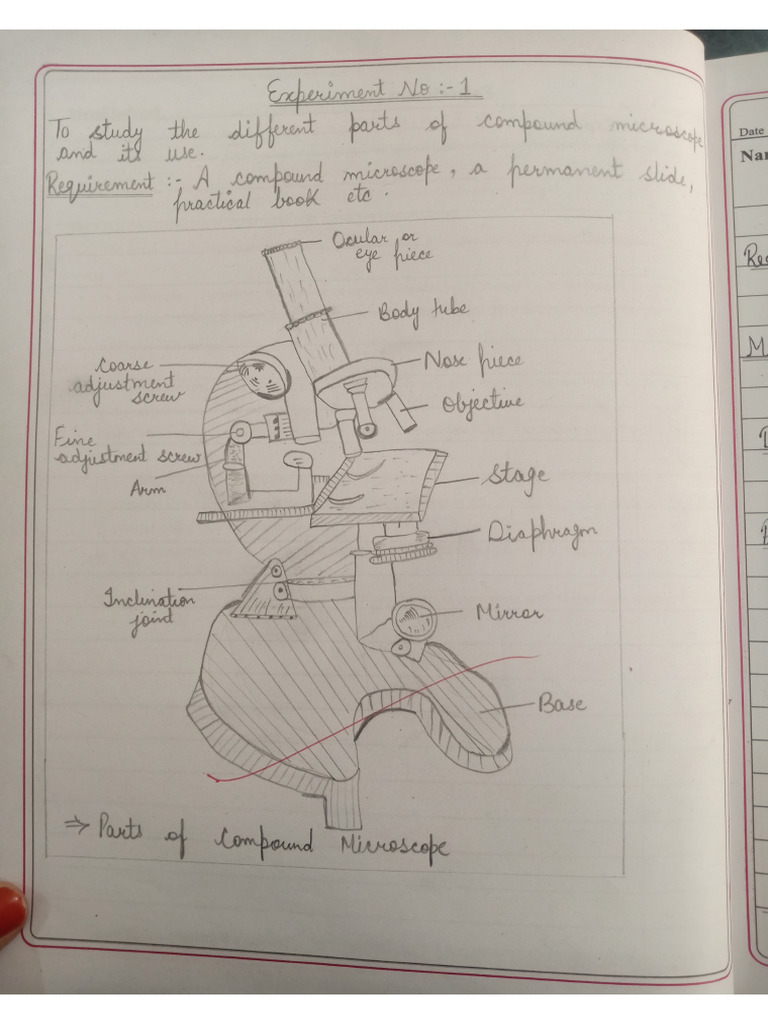 Experiment No :- 1
To study the different parts of compound microscope
and its use.
Requirement :- A compound microscope, a permanent slide,
practical book etc.
Ocular or
eye piece
Body tube
Coarse
adjustment
screw
Nose piece
Objective
Fine
adjustment screw
Arm
Stage
Diaphragm
Inclination
joint
Mirror
Base
⇒ Parts of Compound Microscope
Date